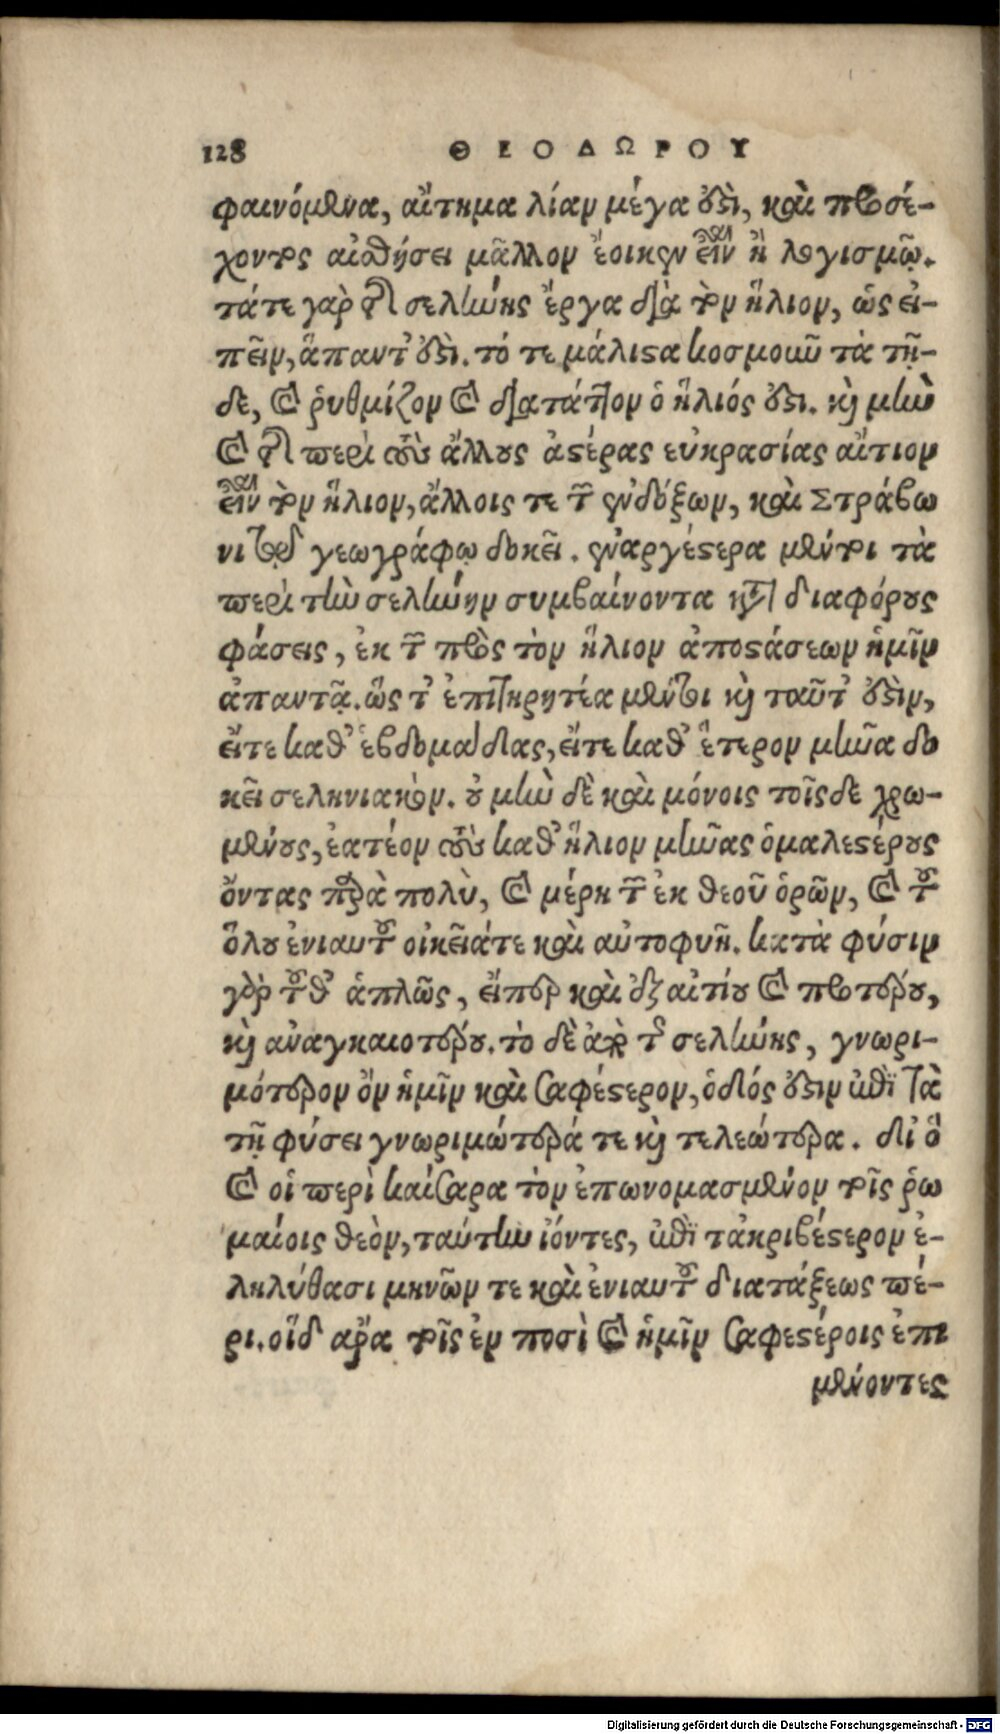 128 ΘΕΟΔΩΡΟΥ
φαινόμενα, αἴτημα λίαν μέγα ἐστὶ, καὶ προσέ-
χοντος αἰσθήσει μᾶλλον ἔοικεν εἶναι ἢ λογισμῷ.
τά τε γὰρ τῆς σελήνης ἔργα διὰ τὸν ἥλιον, ὡς εἰ-
πεῖν, ἅπαντ' ἐστὶ. τό τε μάλιστα κοσμοιοῦ τὰ τῇ-
δε, καὶ ῥυθμίζον καὶ διατάττον ὁ ἥλιός ἐστι. καὶ μὴν
καὶ τῆς περὶ τοὺς ἄλλους ἀστέρας εὐκρασίας αἴτιον
εἶναι τὸν ἥλιον, ἄλλοις τε τῶν ἐνδόξων, καὶ Στράβω
νι τῷ γεωγράφῳ δοκεῖ. ἐναργέστερα μέντοι τὰ
περὶ τὴν σελήνην συμβαίνοντα κατὰ διαφόρους
φάσεις, ἐκ τῶν πρὸς τὸν ἥλιον ἀποστάσεων ἡμῖν
ἀπαντᾷ. ὥς τ' ἐπιτηρητέα μέντοι καὶ ταῦτ' ἐστὶν,
εἴτε καθ' ἑβδομάδας, εἴτε καθ' ἕτερον μῆνα δο
κεῖ σεληνιακόν. οὐ μὴν δὲ καὶ μόνοις τοῖσδε χρω-
μένους, ἐατέον τοὺς καθ' ἥλιον μῆνας ὁμαλεστέρους
ὄντας παρὰ πολὺ, καὶ μέρη τῶν ἐκ θεοῦ ὁρῶν, καὶ τοῦ
ὅλου ἐνιαυτοῦ οἰκεῖά τε καὶ αὐτοφυῆ. κατὰ φύσιν
γὰρ τοῦθ' ἁπλῶς, εἴπερ καὶ ἐξ αἰτίου καὶ προτέρου,
καὶ ἀναγκαιοτέρου. τὸ δὲ ἀπὸ τῆς σελήνης, γνωρι-
μότερον ὂν ἡμῖν καὶ σαφέστερον, ὁδός ἐστιν ἐπὶ τὰ
τῇ φύσει γνωριμώτερά τε καὶ τελεώτερα. δι' ὃ
καὶ οἱ περὶ καίσαρα τὸν ἐπωνομασμένον τοῖς ῥω
μαίοις θεὸν, ταύτην ἰόντες, ἐπὶ τἀκριβέστερον ἐ-
ληλύθασι μηνῶν τε καὶ ἐνιαυτοῦ διατάξεως πέ-
ρι. οἵδ' ἄρα τοῖς ἐν ποσὶ καὶ ἡμῖν σαφεστέροις ἐπι
μένοντες
Digitalisierung gefördert durch die Deutsche Forschungsgemeinschaft - DFG